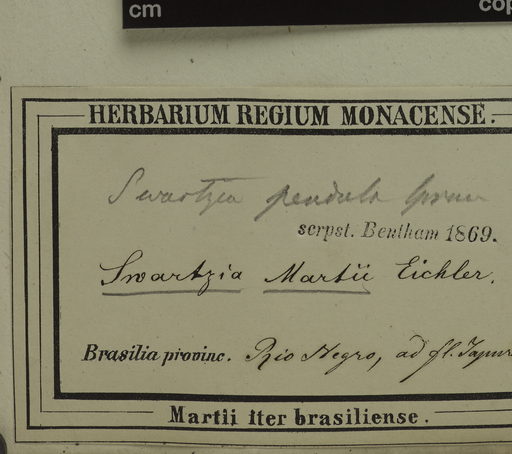 cm
cop
HERBARIUM REGIUM MONACENSE.
Swartzia pendula Spruce
scrpst. Bentham 1869.
Swartzia Martii Eichler.
Brasilia provinc. Rio Negro, ad fl. Japur
Martii iter brasiliense.